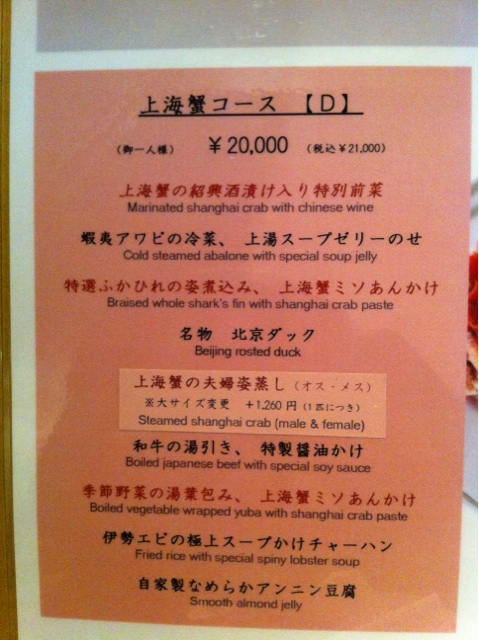 上海蟹コース 【D】
(御一人様) ￥20,000 (税込￥21,000)
上海蟹の紹興酒漬け入り特別前菜
Marinated shanghai crab with chinese wine
蝦夷アワビの冷菜、 上湯スープゼリーのせ
Cold steamed abalone with special soup jelly
特選ふかひれの姿煮込み、 上海蟹ミソあんかけ
Braised whole shark's fin with shanghai crab paste
名物 北京ダック
Beijing rosted duck
上海蟹の夫婦姿蒸し(オス・メス)
※大サイズ変更 +1,260円(1匹につき)
Steamed shanghai crab (male & female)
和牛の湯引き、 特製醤油かけ
Boiled japanese beef with special soy sauce
季節野菜の湯葉包み、 上海蟹ミソあんかけ
Boiled vegetable wrapped yuba with shanghai crab paste
伊勢エビの極上スープかけチャーハン
Fried rice with special spiny lobster soup
自家製なめらかアンニン豆腐
Smooth almond jelly